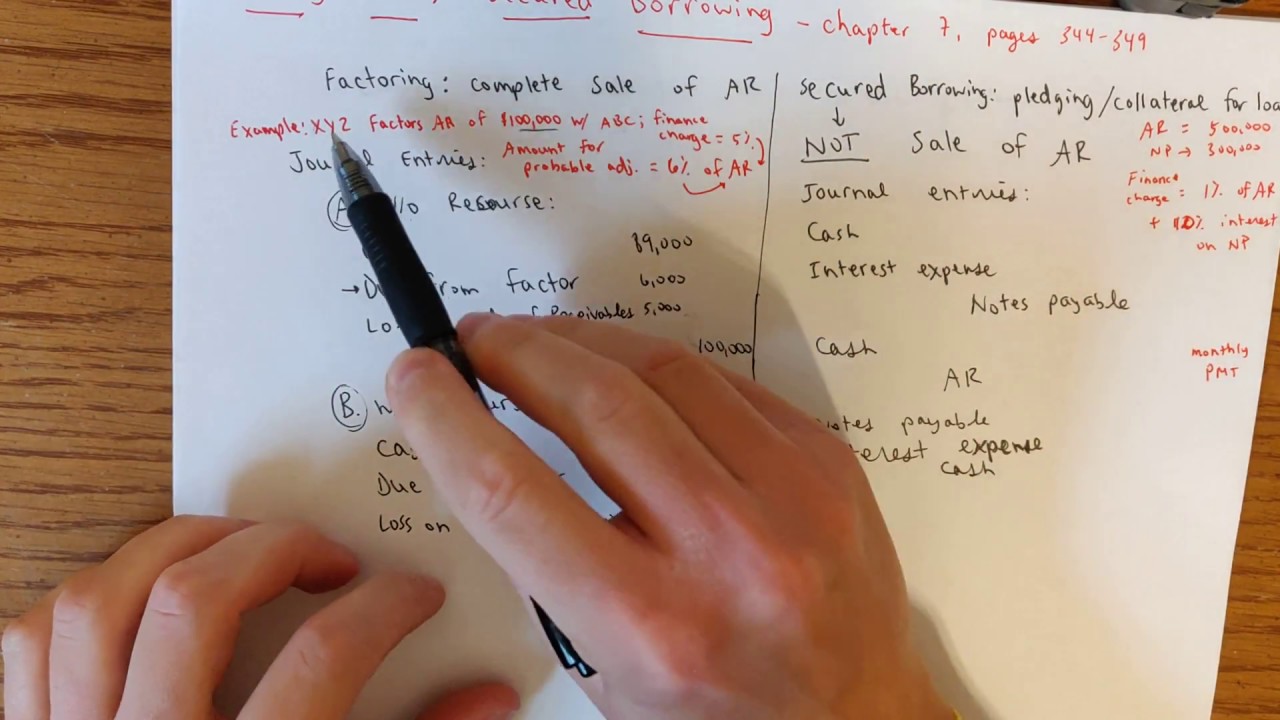 Borrowing - chapter 7, pages 344-349
Factoring: complete sale of AR
Example: XYZ Factors AR of $100,000 w/ ABC; finance charge = 5%
Amount for probable adj. = 6% of AR
Journal Entries:
Recourse:
89,000
from factor 6,000
Receivables 5,000
100,000
B.
Due
Loss on
Secured Borrowing: pledging/collateral for
NOT Sale of AR
AR = 500,000
NP → 300,000
Journal entries:
Finance charge = 1% of AR
+ 10% interest
on NP
Cash
Interest expense
Notes payable
Cash
AR
monthly
PMT
payable
expense
cash